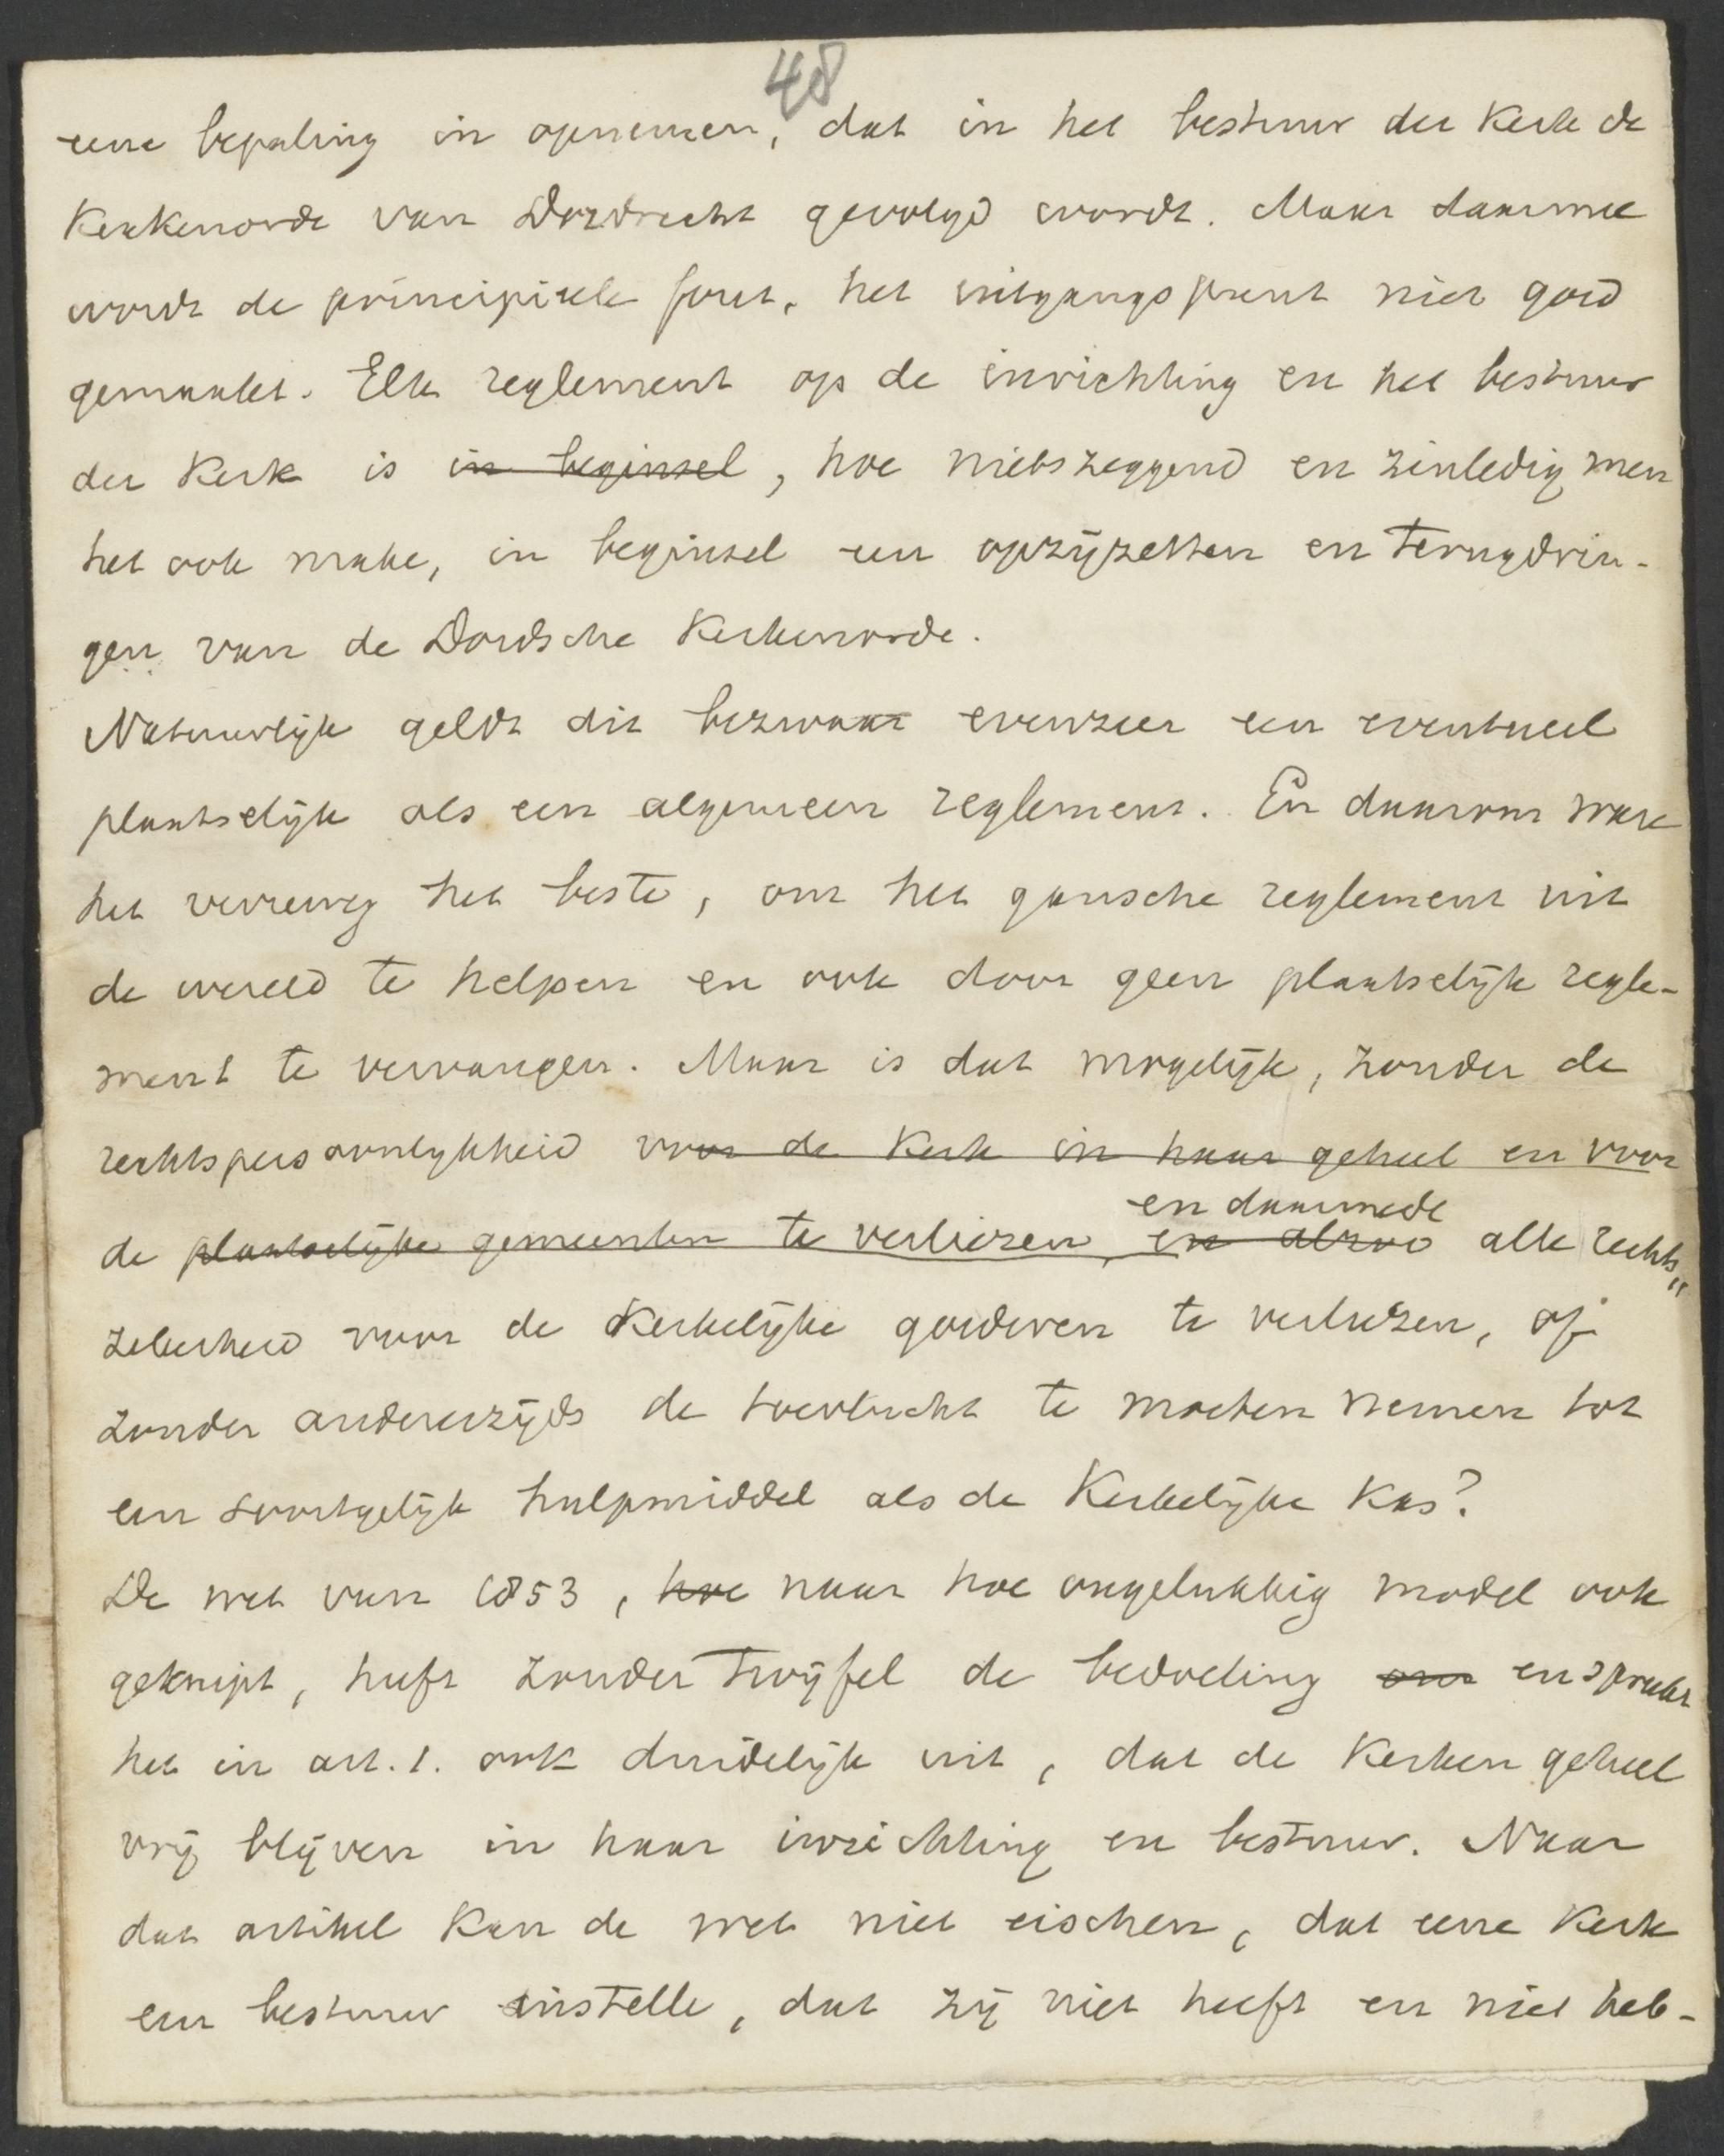 48
eene bepaling in opnemen, dat in het bestuur der Kerk de
Kerkenorde van Dordrecht gevolgd wordt. Maar daarmee
wordt de principieele fout, het uitgangspunt niet goed
gemaakt. Elk reglement op de inrichting en het bestuur
der Kerk is in beginsel, hoe nietszeggend en zinledig men
het ook make, in beginsel een opzijzetten en terugdrin-
gen van de Dordsche Kerkenorde.
Natuurlijk geldt dit bezwaar evenzeer een eventueel
plaatselijk als een algemeen reglement. En daarom ware
het verreweg het beste, om het gansche reglement uit
de wereld te helpen en ook door geen plaatselijk regle-
ment te vervangen. Maar is dat mogelijk, zonder de
rechtspersoonlijkheid voor de Kerk in haar geheel en voor
en daarmede
de plaatselijke gemeenten te verliezen, en alzoo alle rechts„
zekerheid voor de Kerkelijke goederen te verliezen, of
zonder anderszijds de toevlucht te moeten nemen tot
een soortgelijk hulpmiddel als de Kerkelijke Kas?
De wet van 1853, hoe naar hoe ongelukkig model ook
geknipt, heeft zonder twijfel de bedoeling om en spreekt
het in art. 1. ook duidelijk uit, dat de Kerken geheel
vrij blijven in haar inrichting en bestuur. Naar
dat artikel kan de wet niet eischen, dat eene Kerk
een bestuur instelle, dat zij niet heeft en niet heb-